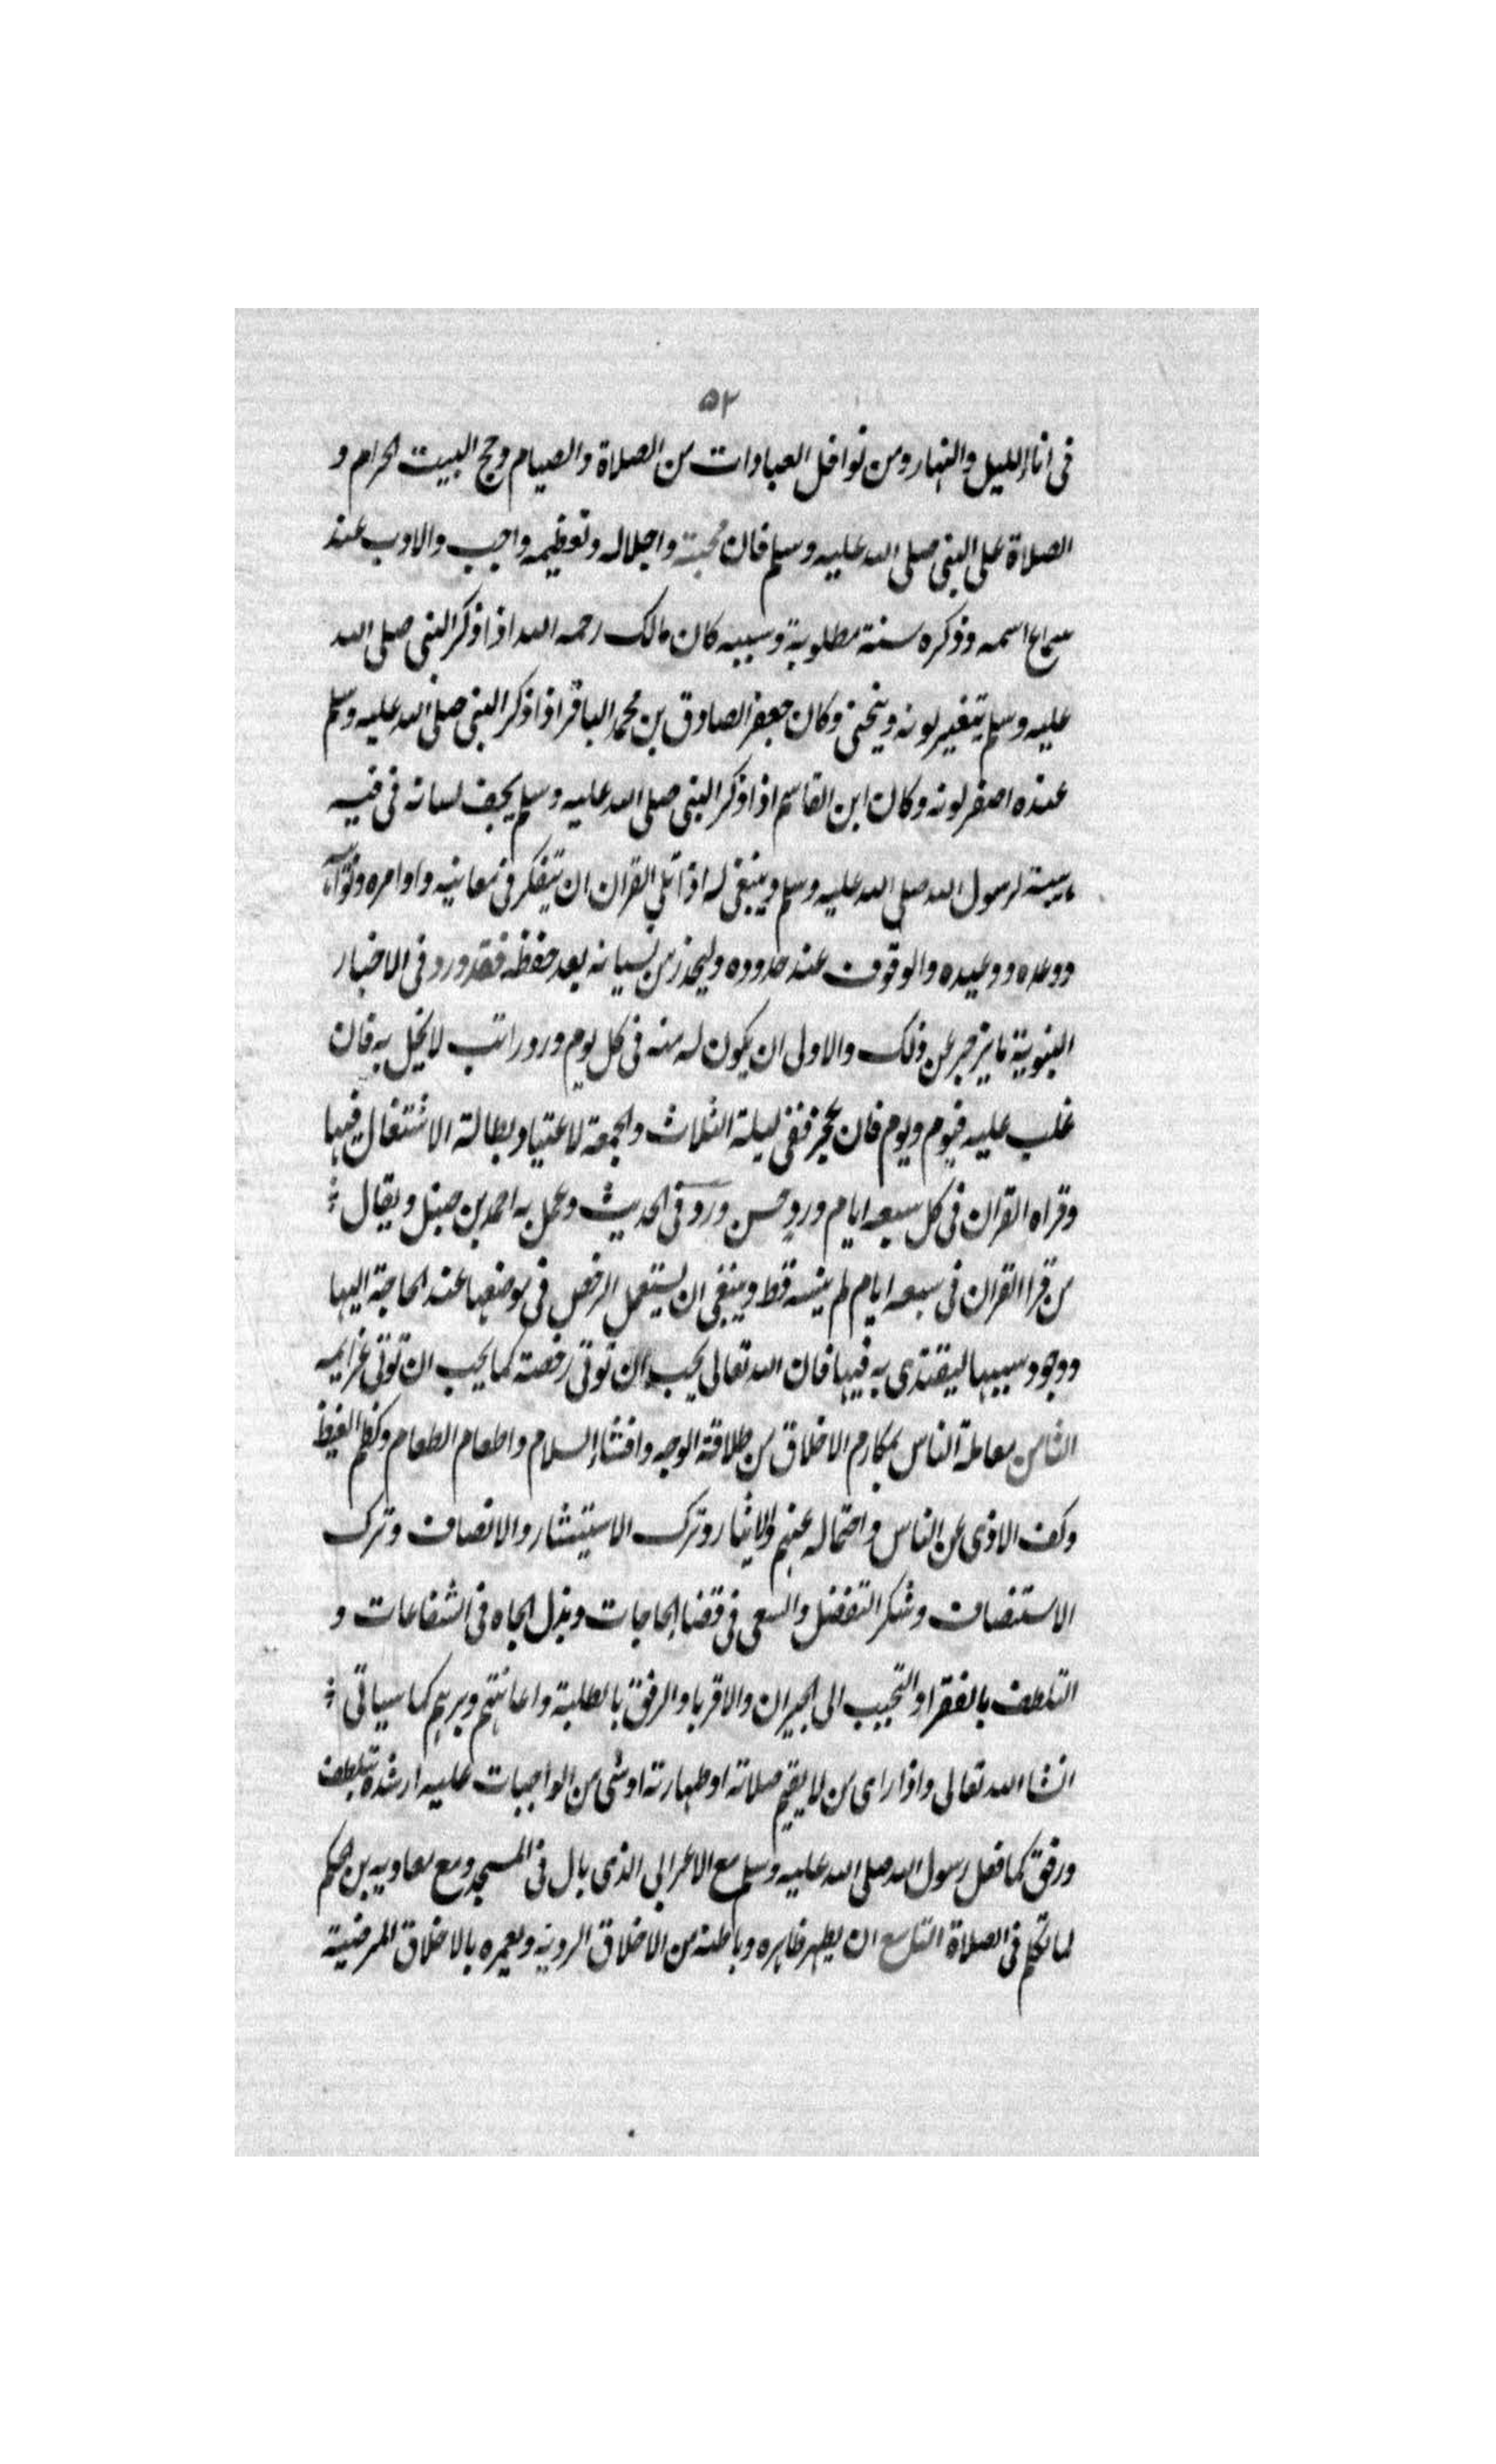 ۵۲
فى اناء الليل والنهار ومن نوافل العبادات من الصلاة والصيام وحج البيت الحرام و
الصلاة على النبى صلى الله عليه وسلم فان محبته واجلاله وتعظيمه واجب والادب عند
سماع اسمه وذكره سنة مطلوبة وسببه كان مالك رحمه الله اذا ذكر النبى صلى الله
عليه وسلم يتغير لونه وينحنى وكان جعفر الصادق بن محمد الباقر اذا ذكر النبى صلى الله عليه وسلم
عنده اصفر لونه وكان ابن القاسم اذا ذكر النبى صلى الله عليه وسلم يجف لسانه فى فيه
هيبة لرسول الله صلى الله عليه وسلم وينبغى له اذا تلى القران ان يتفكر فى معانيه واوامره ونواهيه
ووعده ووعيده والوقوف عند حدوده وليحذر من نسيانه بعد حفظه فقد ورد فى الاخبار
النبوية ما يزجر عن ذلك والاولى ان يكون له منه فى كل يوم ورد راتب لا يخل به فان
غلب عليه فيوم ويوم فان عجز ففى ليلة الثلاث والجمعة لاعتياد بطالة الاشتغال فيها
وقراه القران فى كل سبعه ايام ورد حسن ورد فى الحديث وعمل به احمد بن حنبل ويقال
من قرا القران فى سبعه ايام لم ينسه قط وينبغى ان يستعمل الرخص فى موضعها عند الحاجة اليها
ووجود سببها ليقتدى به فيها فان الله تعالى يحب ان توتى رخصه كما يحب ان توتى عزايمه
الثامن معاملة الناس بمكارم الاخلاق من طلاقة الوجه وافشاء السلام واطعام الطعام وكظم الغيظ
وكف الاذى عن الناس واحتماله عنهم والايثار وترك الاستيثار والانصاف وترك
الاستنصاف وشكر التفضل والسعى فى قضا الحاجات وبذل الجاه فى الشفاعات و
التلطف بالفقرا والتحبب الى الجيران والاقربا والرفق بالطلبة واعانتهم وبرهم كما سياتى
انشا الله تعالى واذا راى من لا يقيم صلاته او طهارته او شى من الواجبات عليه ارشده بتلطف
ورفق كما فعل رسول الله صلى الله عليه وسلم مع الاعرابى الذى بال فى المسجد ومع معاويه بن حكم
لما تكلم فى الصلاة التاسع ان يطهر ظاهره وباطنه من الاخلاق الرديه ويعمره بالاخلاق المرضية